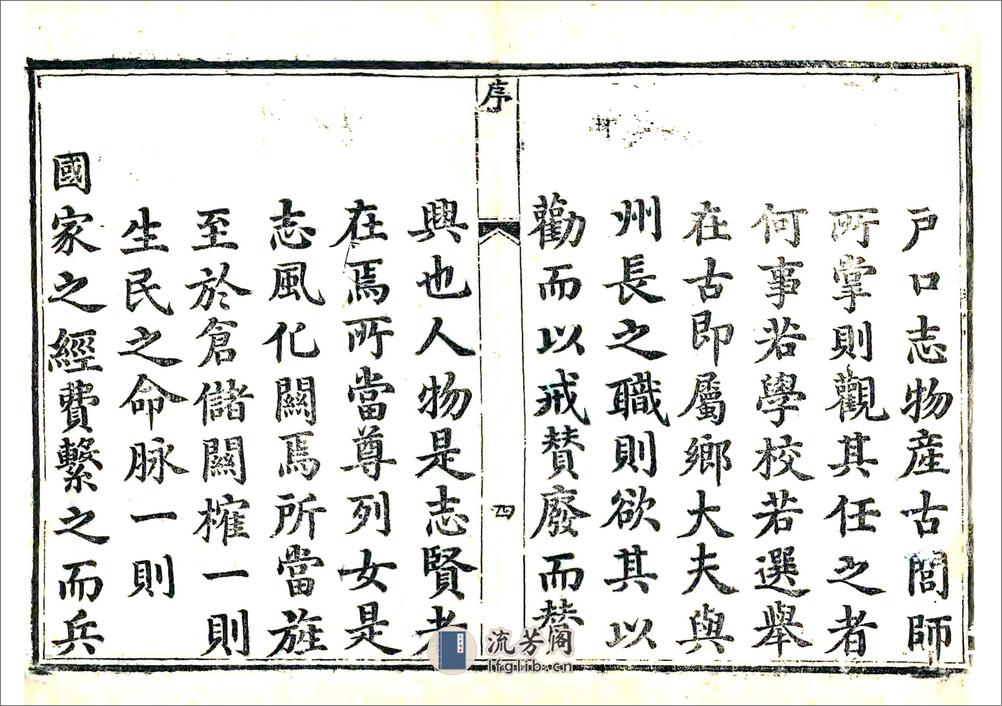 戸口志物産古閭師
所掌則觀其任之者
何事若學校若選舉
在古即屬鄉大夫與
州長之職則欲其以
勸而以戒賛廢而賛
序
四
興也人物是志賢者
在焉所當尊列女是
志風化關焉所當旌
至於倉儲關榷一則
生民之命脉一則
國家之經費繫之而兵
流芳阁
lfglib.cn